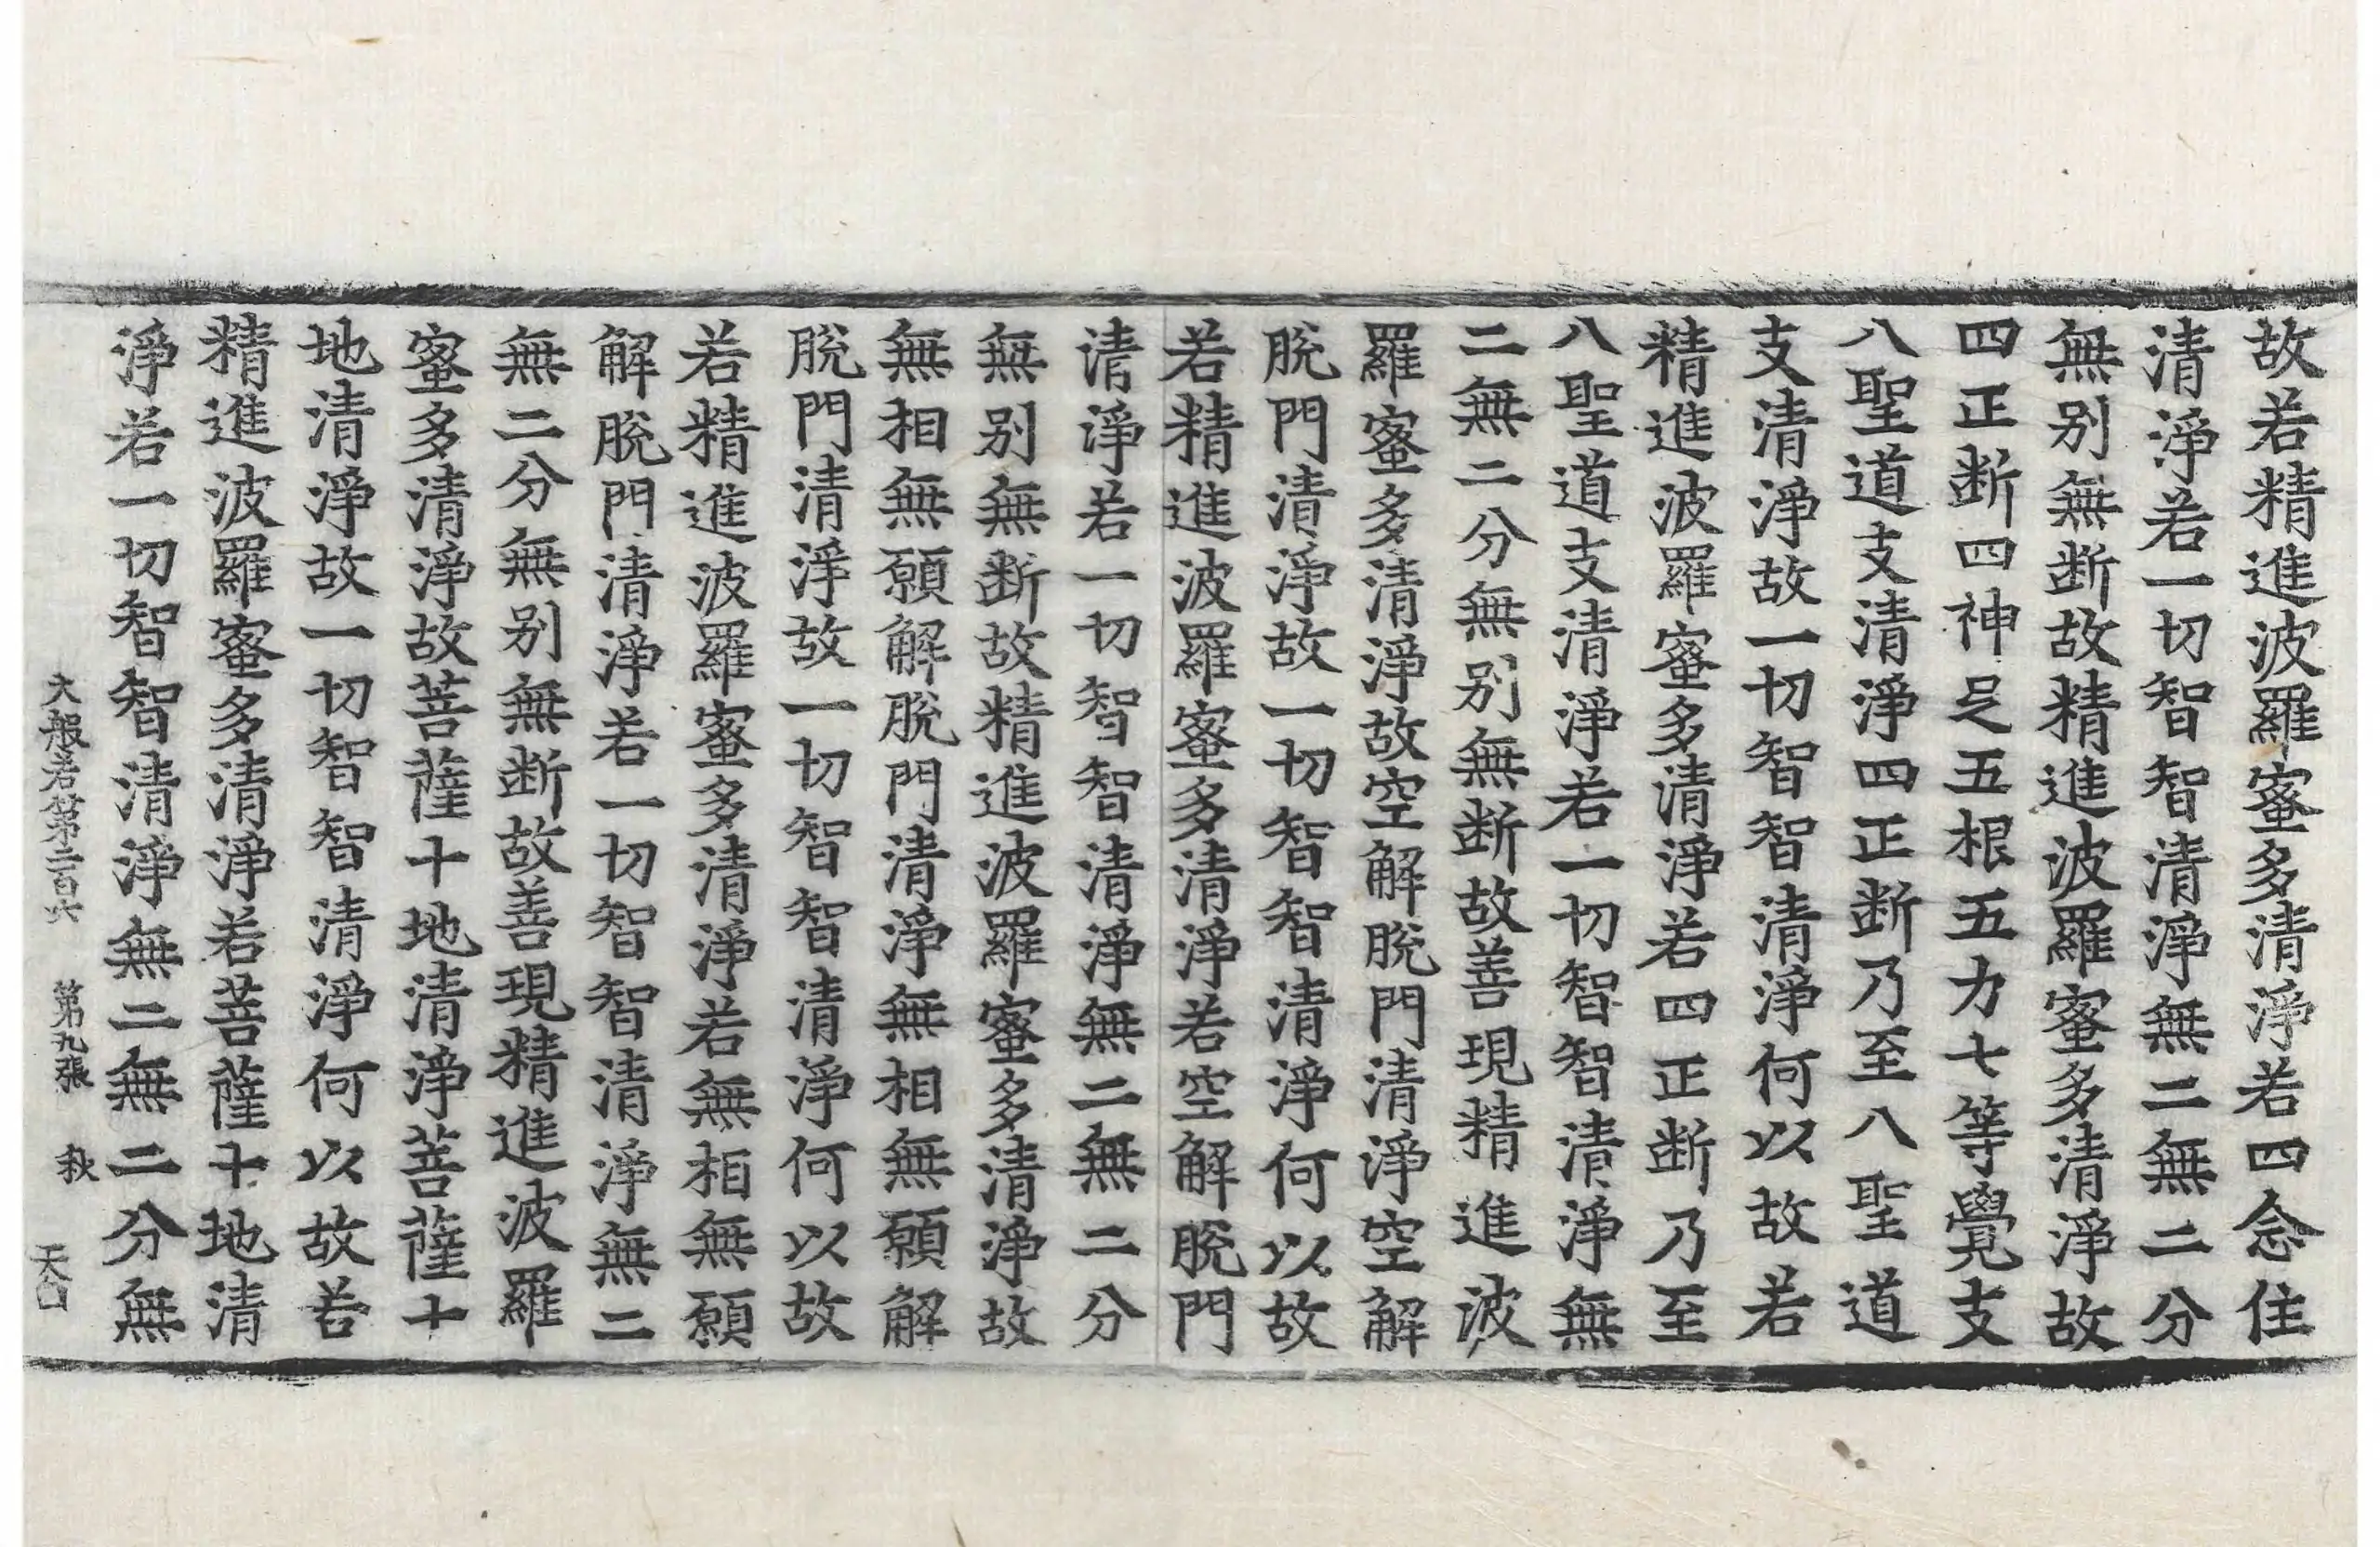 故若精進波羅蜜多清淨若四念住
清淨若一切智智清淨無二無二分
無別無斷故精進波羅蜜多清淨故
四正斷四神足五根五力七等覺支
八聖道支清淨四正斷乃至八聖道
支清淨故一切智智清淨何以故若
精進波羅蜜多清淨若四正斷乃至
八聖道支清淨若一切智智清淨無
二無二分無別無斷故善現精進波
羅蜜多清淨故空解脫門清淨空解
脫門清淨故一切智智清淨何以故
若精進波羅蜜多清淨若空解脫門
清淨若一切智智清淨無二無二分
無別無斷故精進波羅蜜多清淨故
無相無願解脫門清淨無相無願解
脫門清淨故一切智智清淨何以故
若精進波羅蜜多清淨若無相無願
解脫門清淨若一切智智清淨無二
無二分無別無斷故善現精進波羅
蜜多清淨故菩薩十地清淨菩薩十
地清淨故一切智智清淨何以故若
精進波羅蜜多清淨若菩薩十地清
淨若一切智智清淨無二無二分無
大般若第二百六 第九張 秋 天